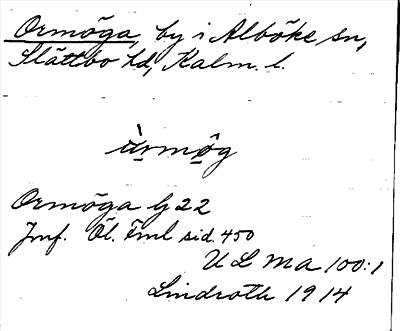 Ormöga, by i Alböke sn,
Slättbo hd, Kalm. l.
ùrmôg
Ormöga G 22
Jmf. Öl. Fml sid. 450
ULMA 100:1
Lindroth 1914